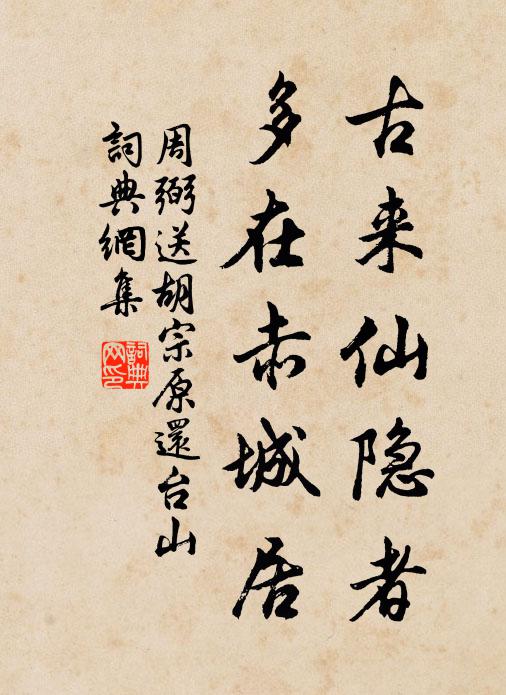 古来仙隐者
多在赤城居
周弼送胡宗原還台山
詞典網集
詞典網印